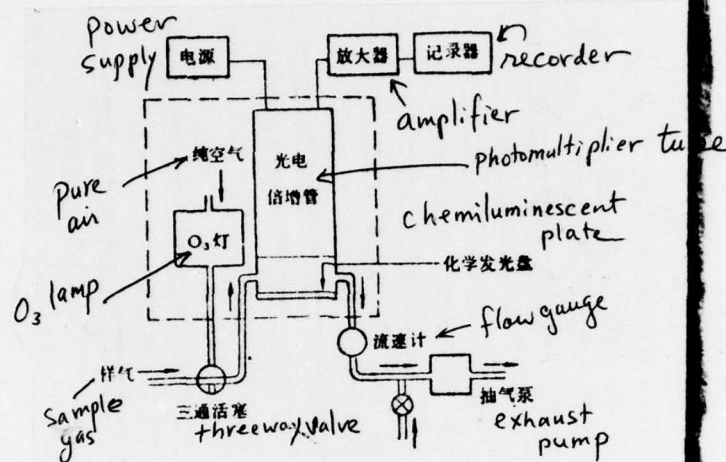 power
supply
电源
放大器
记录器
recorder
amplifier
纯空气
光电
倍增管
photomultiplier tube
pure
air
O₃灯
chemiluminescent
plate
化学发光盘
O₃ lamp
流速计
flow gauge
样气
sample
gas
三通活塞
threeway valve
抽气泵
exhaust
pump